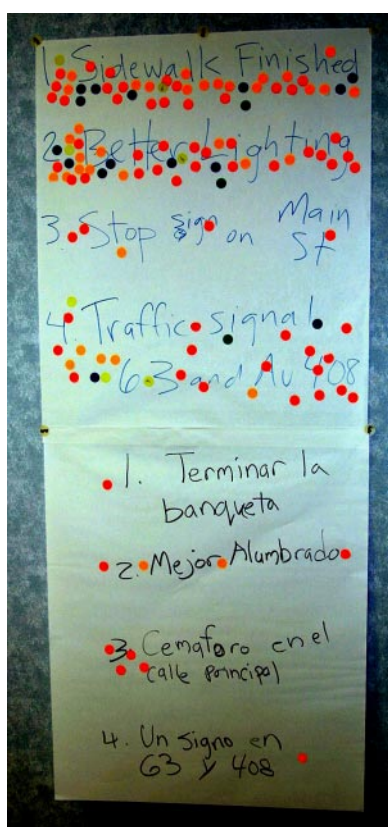 1. Sidewalk Finished
2. Better Lighting
3. Stop sign on Main
St
4. Traffic signal
63 and Av 408
1. Terminar la
banqueta
2. Mejor Alumbrado
3. Cemaforo en el
calle principal
4. Un signo en
63 y 408